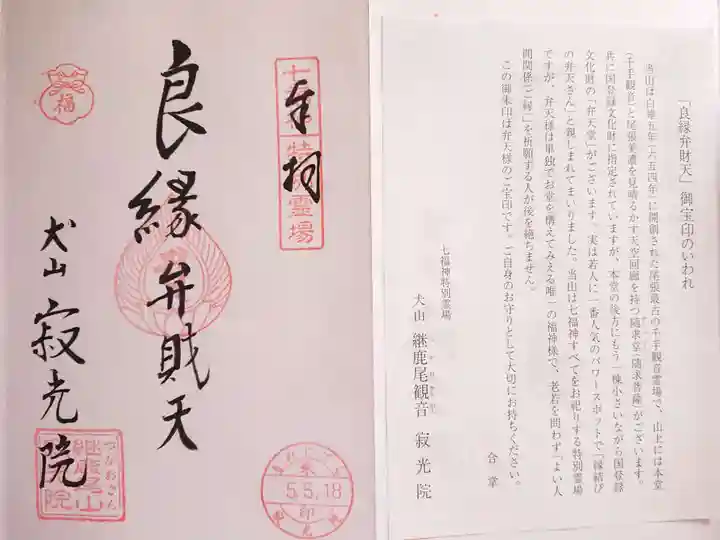 奉拝
七
特
霊場
良縁弁財天
福
犬山 寂光院
つぎおさん
継鹿
山
院
5.5.18
印
「良縁弁財天」御宝印のいわれ
当山は白雉五年(六五四年)に開創された尾張最古の千手観音霊場で、山上には本堂
(千手観音)と尾張美濃を見晴るかす天空回廊を持つ随求堂(随求菩薩)がございます。
共に国登録文化財に指定されていますが、本堂の後方にもう一棟小さいながら国登録
文化財の「弁天堂」がございます。実は若人に一番人気のパワースポットで「縁結び
の弁天さん」と親しまれてまいりました。当山は七福神すべてをお祀りする特別霊場
ですが、弁天様は単独でお堂を構えてみえる唯一の福神様で、老若を問わず「よい人
間関係(ご縁)」を祈願する人が後を絶ちません。
この御朱印は弁天様のご宝印です。ご自身のお守りとして大切にお持ちください。
合掌
七福神特別霊場
犬山 継鹿尾観音 寂光院